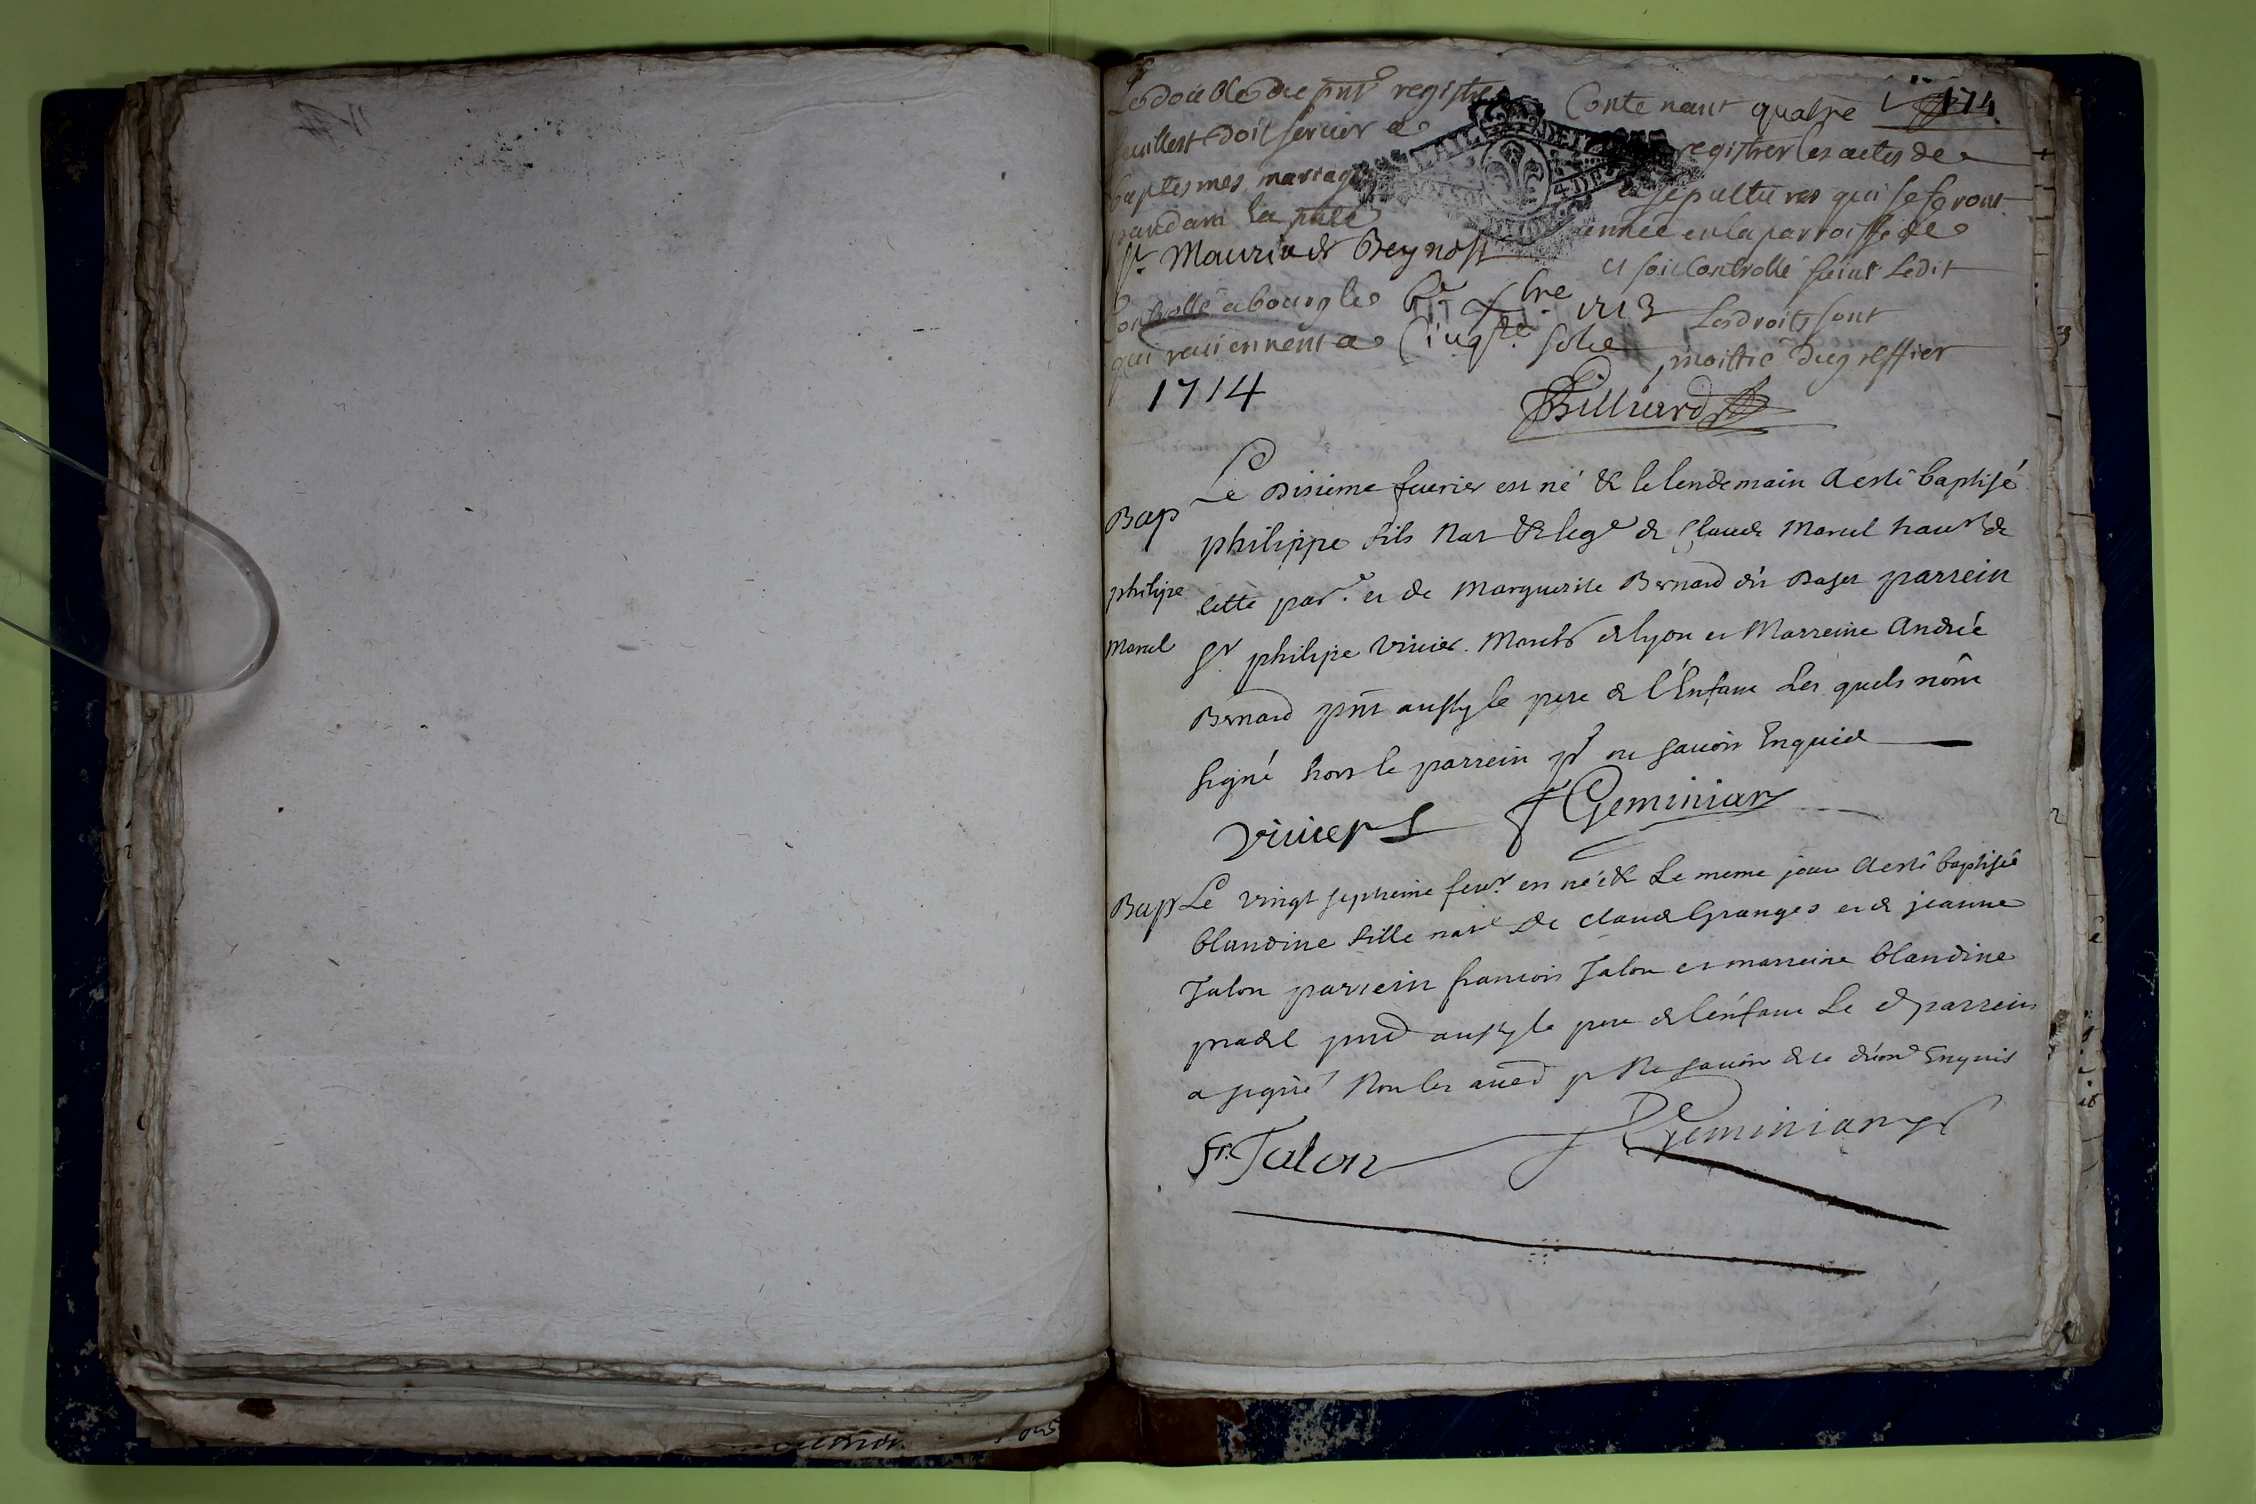 Le double du pnt registre Contenant quatre 1 174
feuillest doit servir a registrer les actes de
baptesmes mariages et sepultures qui se feront
pandant la pnte année en la parroisse de
St Maurice de Beynost et soit controllé suivt Ledit
Controllé a bourg le xbre 1713 Les droits sont
qui reviennent a Cinqte sols moitié du greffier
1714
Billiard
Le disieme fevrier est né & le lendemain a esté baptisé
Bap
philippe fils nat & lege de Claude Marcel habt de
philipe
cette par. et de Marguerite Bernard dit parrein
Marcel
Sr philipe Vivier March de lyon et Marreine Andrée
Bernard pnt aussy le pere de l'Enfant Les quels nont
signé hors le parrein pr ne savoir Enquis
Vivier Geminian
Bap Le vingt septieme fevr est née & Le meme jour a esté baptisée
blandine fille natle De claude Granges et de jeanne
Talon parrein francois Talon et marreine blandine
pradel aussy le pere de lénfant Le d parrein
a signé Non les pr Ne savoir de ce Enquis
Fr. Talon Geminian